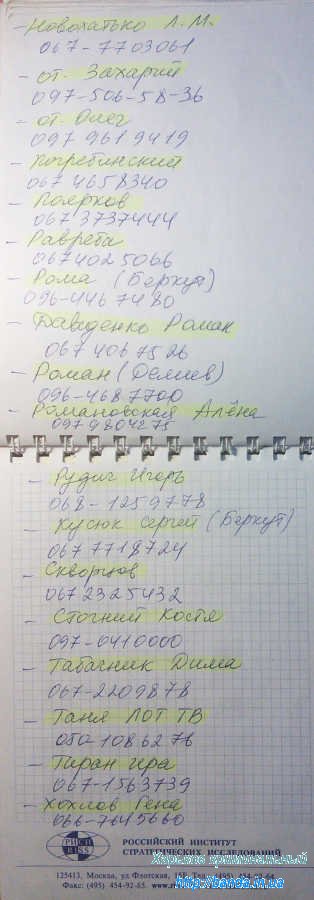 - Новохатько Л.М.
067-7703061
- от. Захарий
097-506-58-36
- от. Олег
097 961 9419
- Погребинский
067 4658340
- Поярков
067 3737444
- Раврева
067 402 5066
- Рома (Беркут)
096-446 74 80
- Давиденко Роман
067 406 75 26
- Роман (Делиев)
096-468 7700
- Романовская Алёна
097 9804275
- Рудич Игорь
068-1259778
- Кусюк Сергей (Беркут)
067 7718724
- Скворцов
067 2325432
- Стогний Костя
097-0410000
- Табачник Дима
067-2209878
- Таня ЛОТ ТВ
050 1086276
- Тиран гра
067-1563739
- Хохлов Гена
066-7645660
РИСИ
RISS
РОССИЙСКИЙ ИНСТИТУТ
СТРАТЕГИЧЕСКИХ ИССЛЕДОВАНИЙ
Харьков криминальный
125413, Москва, ул Флотская, 15Б. Тел. (495) 454-92-64
Факс: (495) 454-92-65.